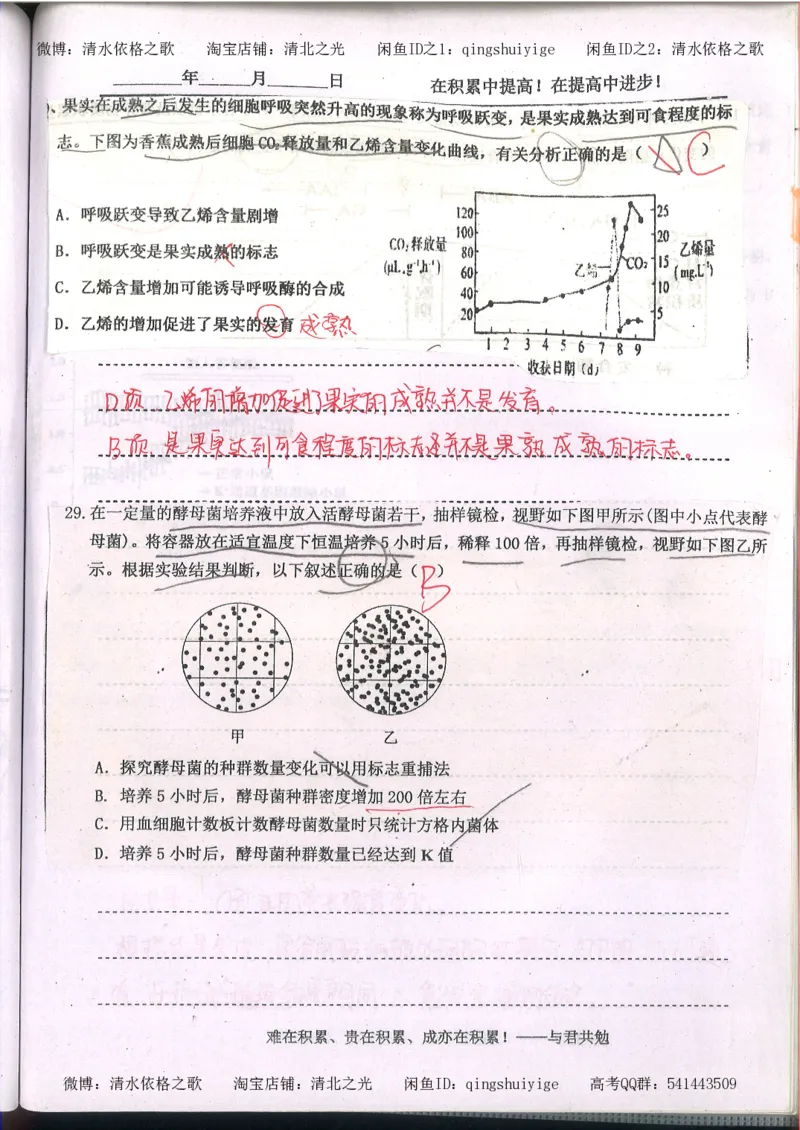 微博：清水依格之歌 淘宝店铺：清北之光 闲鱼ID之1：qingshuiyige 闲鱼ID之2：清水依格之歌
年 月 日 在积累中提高！在提高中进步！
、果实在成熟之后发生的细胞呼吸突然升高的现象称为呼吸跃变，是果实成熟达到可食程度的标
志。下图为香蕉成熟后细胞 CO₂释放量和乙烯含量变化曲线，有关分析正确的是（ D C ）
A．呼吸跃变导致乙烯含量剧增
B．呼吸跃变是果实成熟的标志
C．乙烯含量增加可能诱导呼吸酶的合成
D．乙烯的增加促进了果实的发育 成熟
CO₂释放量
(μL.g⁻¹h⁻¹)
120
100
80
60
40
20
乙烯
CO₂
25
20
15
10
5
乙烯量
(mg.L⁻¹)
1 2 3 4 5 6 7 8 9
收获日期（d）
D项，乙烯的增加促进了果实的成熟并不是发育。
B项，是果实达到可食程度的标志并不是果熟成熟的标志。
29. 在一定量的酵母菌培养液中放入活酵母菌若干，抽样镜检，视野如下图甲所示(图中小点代表酵
母菌)。将容器放在适宜温度下恒温培养 5 小时后，稀释 100 倍，再抽样镜检，视野如下图乙所
示。根据实验结果判断，以下叙述正确的是（ B ）
甲 乙
A．探究酵母菌的种群数量变化可以用标志重捕法
B．培养 5 小时后，酵母菌种群密度增加 200 倍左右
C．用血细胞计数板计数酵母菌数量时只统计方格内菌体
D．培养 5 小时后，酵母菌种群数量已经达到 K 值
难在积累、贵在积累、成亦在积累！——与君共勉
微博：清水依格之歌 淘宝店铺：清北之光 闲鱼ID：qingshuiyige 高考QQ群：541443509